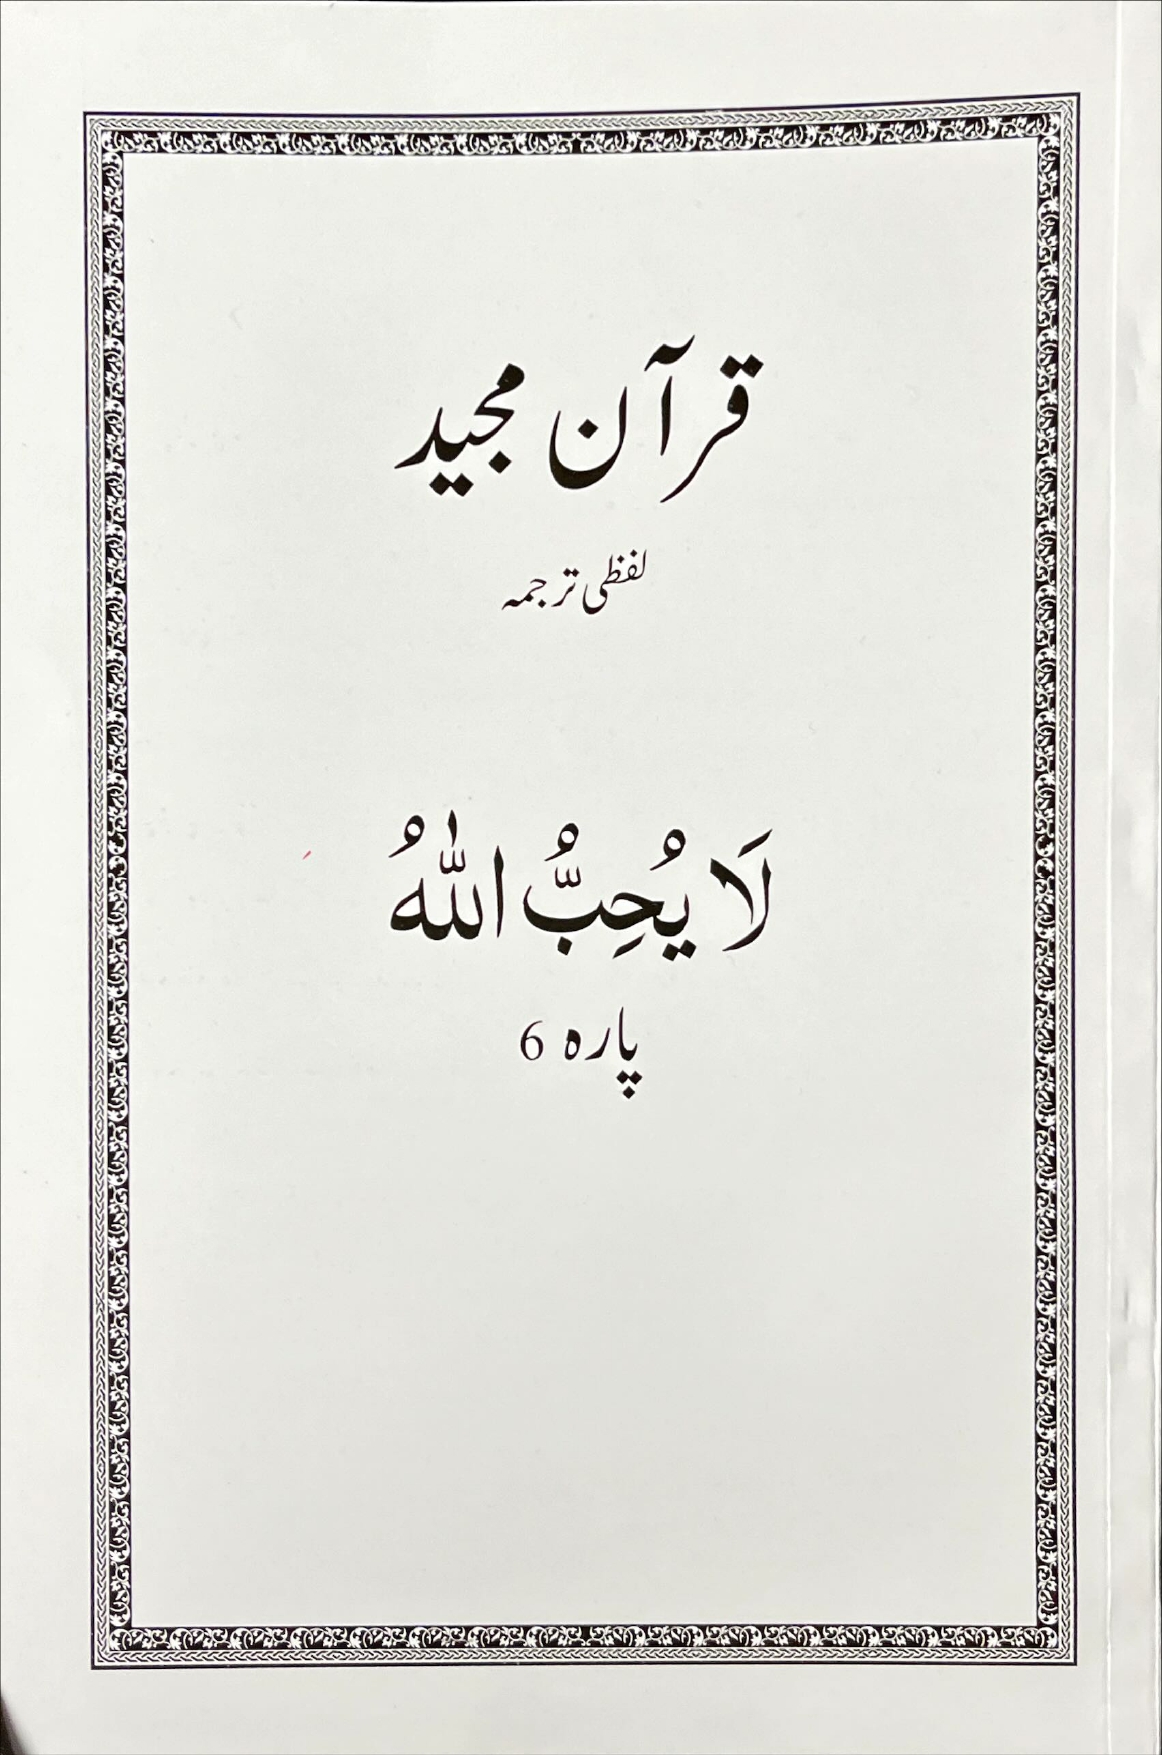 قرآن مجید
لفظی ترجمہ
لَا یُحِبُّ اللّٰهُ
پارہ 6